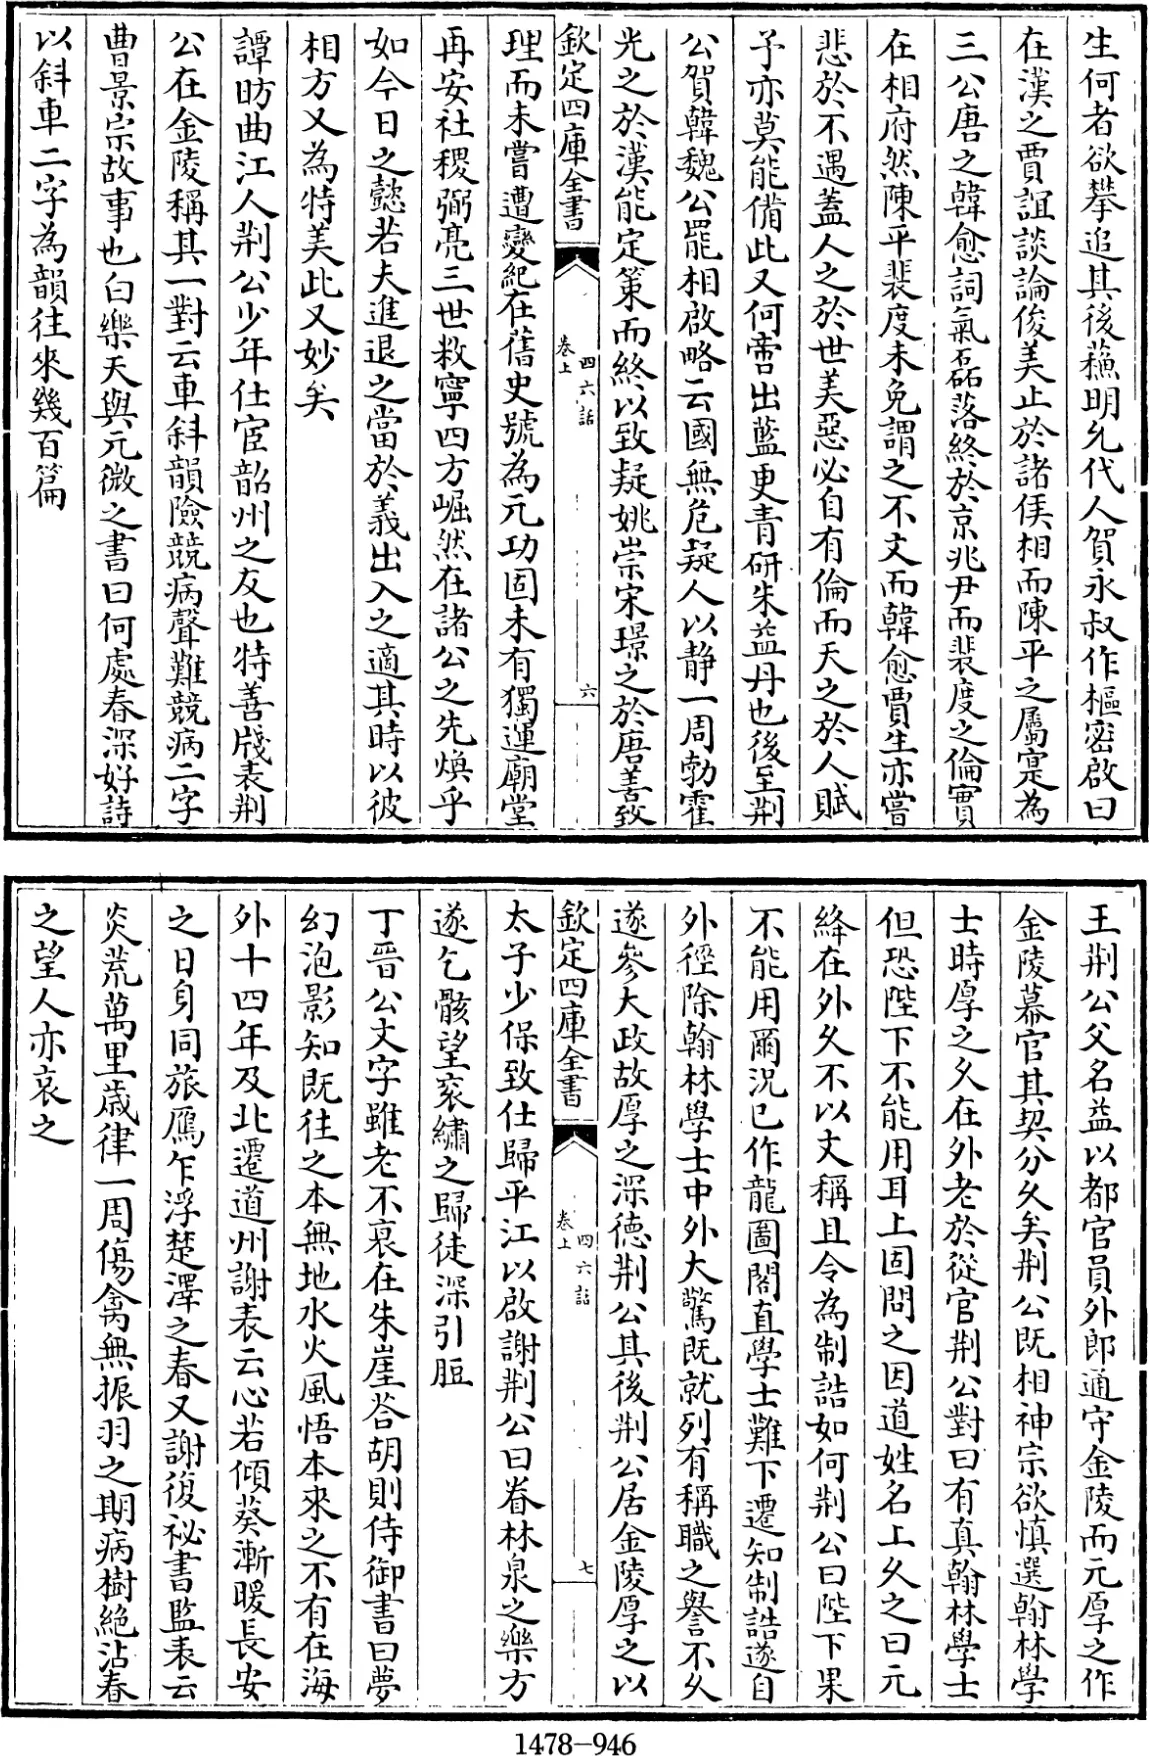 生何者欲攀追其後蘓明允代人賀永叔作樞密啟曰
在漢之賈誼談論俊美止於諸侯相而陳平之屬寔為
三公唐之韓愈詞氣磊落終於京兆尹而裴度之倫實
在相府然陳平裴度未免謂之不文而韓愈賈生亦嘗
悲於不遇蓋人之於世美惡必自有倫而天之於人賦
予亦莫能備此又何啻出藍更青研朱益丹也後至荆
公賀韓魏公罷相啟略云國無危疑人以静一周勃霍
光之於漢能定策而終以致疑姚崇宋璟之於唐善致
欽定四庫全書
四六話
卷上
六
理而未嘗遭變紀在舊史號為元功固未有獨運廟堂
再安社稷弼亮三世敉寧四方崛然在諸公之先煥乎
如今日之懿若夫進退之當於義出入之適其時以彼
相方又為特美此又妙矣
譚昉曲江人荆公少年仕宦韶州之友也特善牋表荆
公在金陵稱其一對云車斜韻險競病聲難競病二字
曹景宗故事也白樂天與元微之書曰何處春深好詩
以斜車二字為韻往來幾百篇
王荆公父名益以都官員外郎通守金陵而元厚之作
金陵幕官其契分久矣荆公既相神宗欲慎選翰林學
士時厚之久在外老於從官荆公對曰有真翰林學士
但恐陛下不能用耳上固問之因道姓名上久之曰元
絳在外久不以文稱且令為制誥如何荆公曰陛下果
不能用爾況已作龍圖閣直學士難下遷知制誥遂自
外徑除翰林學士中外大驚既就列有稱職之譽不久
遂參大政故厚之深德荆公其後荆公居金陵厚之以
欽定四庫全書
四六話
卷上
七
太子少保致仕歸平江以啟謝荆公曰眷林泉之樂方
遂乞骸望衮繡之歸徒深引脰
丁晉公文字雖老不衰在朱崖答胡則侍御書曰夢
幻泡影知既往之本無地水火風悟本來之不有在海
外十四年及北遷道州謝表云心若傾葵漸暖長安
之日身同旅鴈乍浮楚澤之春又謝復秘書監表云
炎荒萬里歲律一周傷禽無振羽之期病樹絶沾春
之望人亦哀之
1478–946